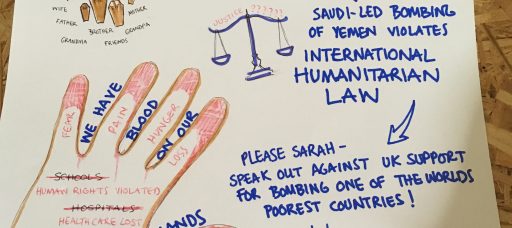 WIFE
MOTHER
FATHER
BROTHER
GRANDPA
GRANDMA
FRIENDS
JUSTICE ??????
SAUDI-LED BOMBING
OF YEMEN VIOLATES
INTERNATIONAL
HUMANITARIAN
LAW
WE HAVE
BLOOD
ON OUR
HANDS
FEAR
PAIN
HUNGER
LOSS
SCHOOLS
HUMAN RIGHTS VIOLATED
HOSPITALS
HEALTHCARE LOST
PLEASE SARAH -
SPEAK OUT AGAINST UK SUPPORT
FOR BOMBING ONE OF THE WORLDS
POOREST COUNTRIES!